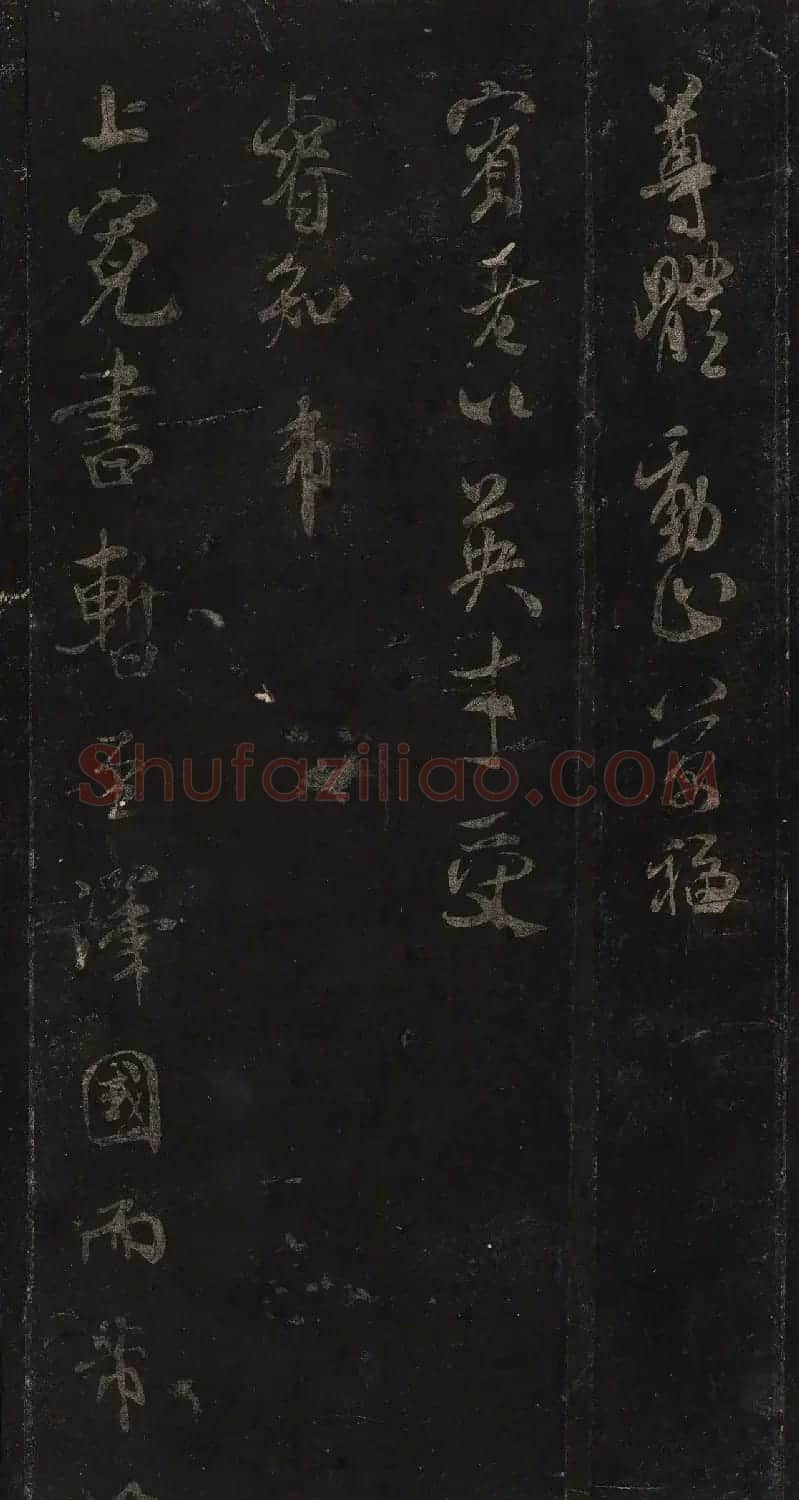 尊體動止萬福
賓客以英才受
睿知帝
上寬書暫至澤國而帶
Shufaziliao.COM